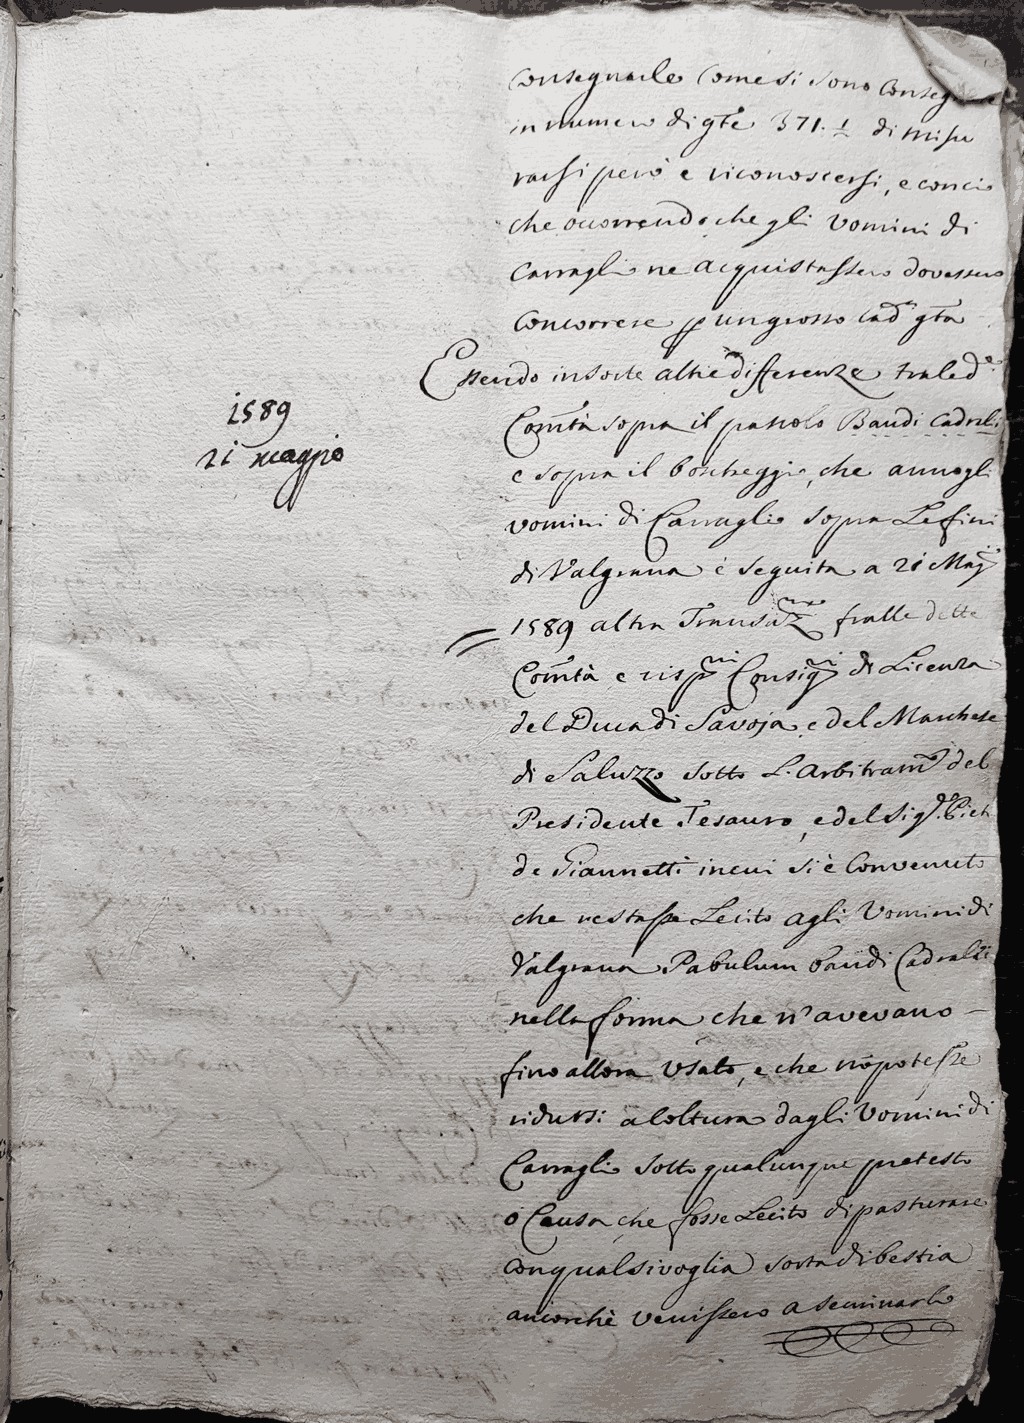 Consegnarle Come si sono Consegnate
in numero di gte 371. 1 di misu
rarsi però e riconoscersi, e concio
che ocorrendo che gli Vomini di
Carragli ne acquistassero dovessero
Concorrere p un grosso Cada gta
Essendo insorte altre differenze tra le de
Comtà sopra il pascolo Bandi Cadrali
e sopra il boscheggio, che annogli
vomini di Carraglio sopra Le fini
di Valgrana è seguita a 21 Mago
1589
21 maggio
1589 altra Transazne fralle dette
Comtà e rispvi Consigri di Licenza
del Duca di Savoja, e del Marchese
di Saluzzo sotto L'Arbitramto del
Presidente Tesauro, e del Sigr. Piet
de Giannetti in cui si è Convenuto
che restasse Lecito agli Vomini di
Valgrana Pabulum bandi Cadralii
nella forma che n'avevano
fino allora Usato, e che nōpotesse
ridursi a Coltura dagli Vomini di
Carragli sotto qualunque pretesto
ó Causa, che fosse Lecito di pasturare
con qualsivoglia sorta di bestia
ancorchè venissero a seminarlo